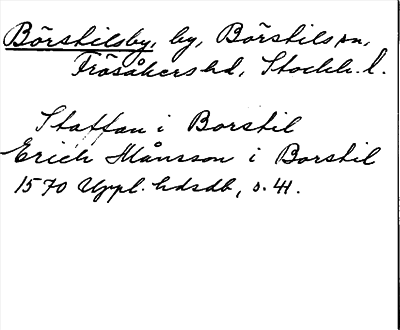 Börstilsby, by, Börstils sn,
Frösåkers hd, Stockh. l.
Staffan i Borstil
Erich Månsson i Borstil
1570 Uppl. hdsdb, s. 41.